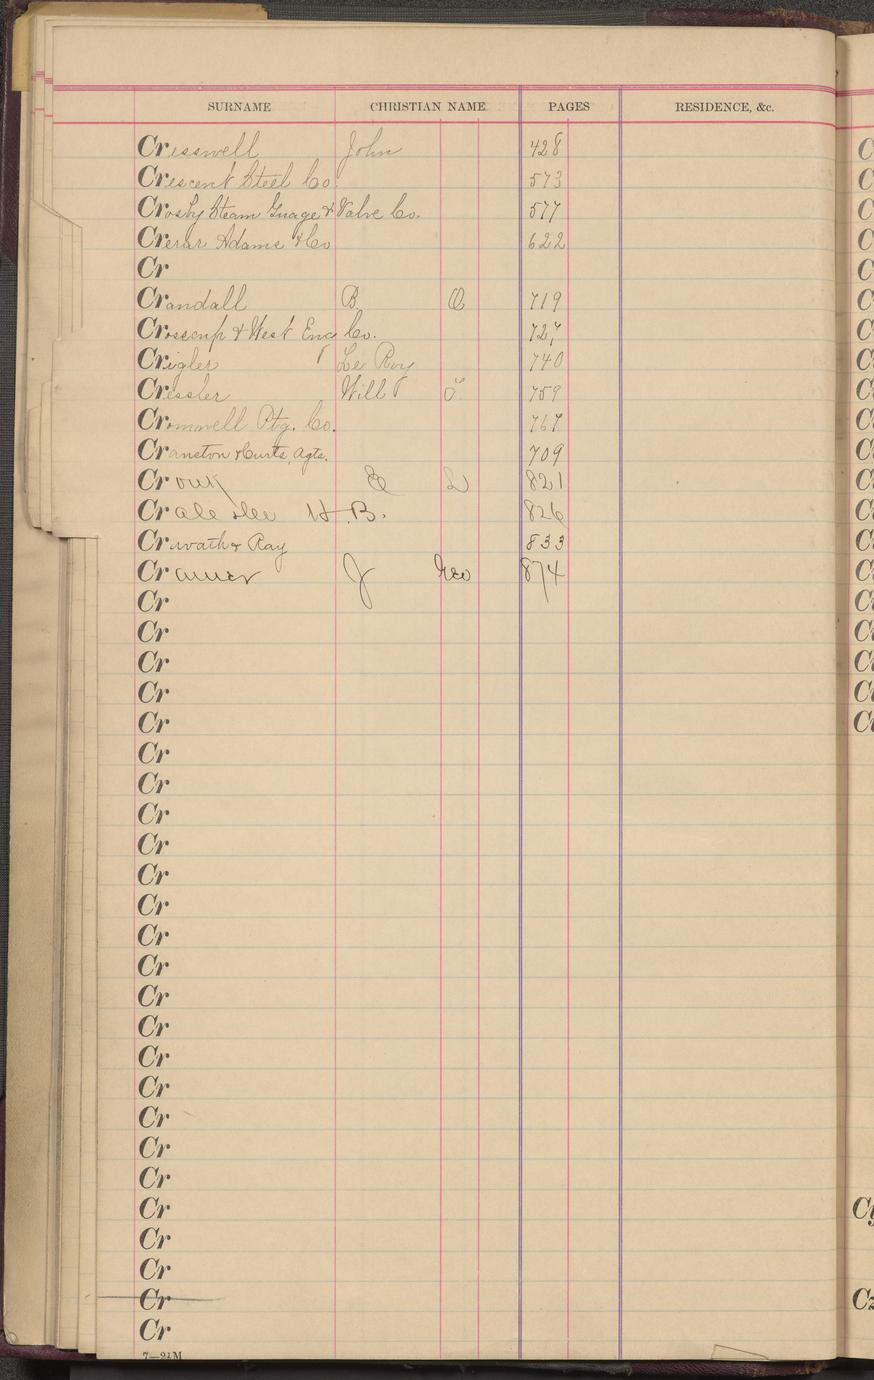 SURNAME CHRISTIAN NAME PAGES RESIDENCE, &c.
Cresswell John 428
Crescent Steel Co. 573
Crosby Steam Guage & Valve Co. 577
Crerar Adams & Co 622
Cr
Crandall B O 719
Croscup & West Eng Co. 727
Crigler Le Roy 740
Cressler Will 759
Cromwell Ptg. Co. 767
Cranston & Curts, Agts. 709
Cr E L 821
Cr H. B. 826
Cr & Ray 833
Cramer J Geo 874
Cr
Cr
Cr
Cr
Cr
Cr
Cr
Cr
Cr
Cr
Cr
Cr
Cr
Cr
Cr
Cr
Cr
Cr
Cr
Cr
Cr
Cr
Cr
Cr
Cr
7—2½M